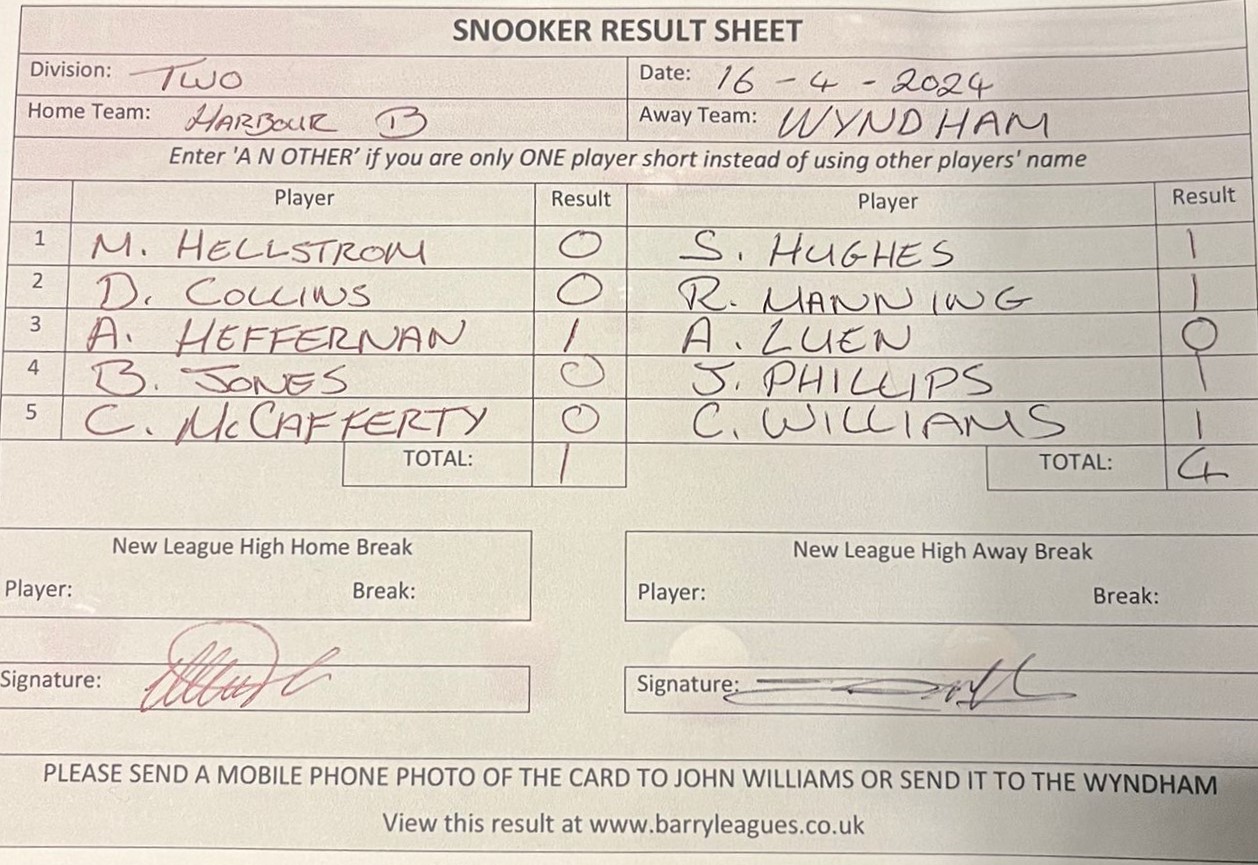 SNOOKER RESULT SHEET
Division: TWO Date: 16 - 4 - 2024
Home Team: HARBOUR B Away Team: WYNDHAM
Enter 'A N OTHER' if you are only ONE player short instead of using other players' name
Player Result Player Result
1 M. HELLSTROM 0 S. HUGHES 1
2 D. COLLINS 0 R. MANNING 1
3 A. HEFFERNAN 1 A. LUEN 0
4 B. JONES 0 J. PHILLIPS 1
5 C. McCAFFERTY 0 C. WILLIAMS 1
TOTAL: 1 TOTAL: 4
New League High Home Break New League High Away Break
Player: Break: Player: Break:
Signature: Signature:
PLEASE SEND A MOBILE PHONE PHOTO OF THE CARD TO JOHN WILLIAMS OR SEND IT TO THE WYNDHAM
View this result at www.barryleagues.co.uk